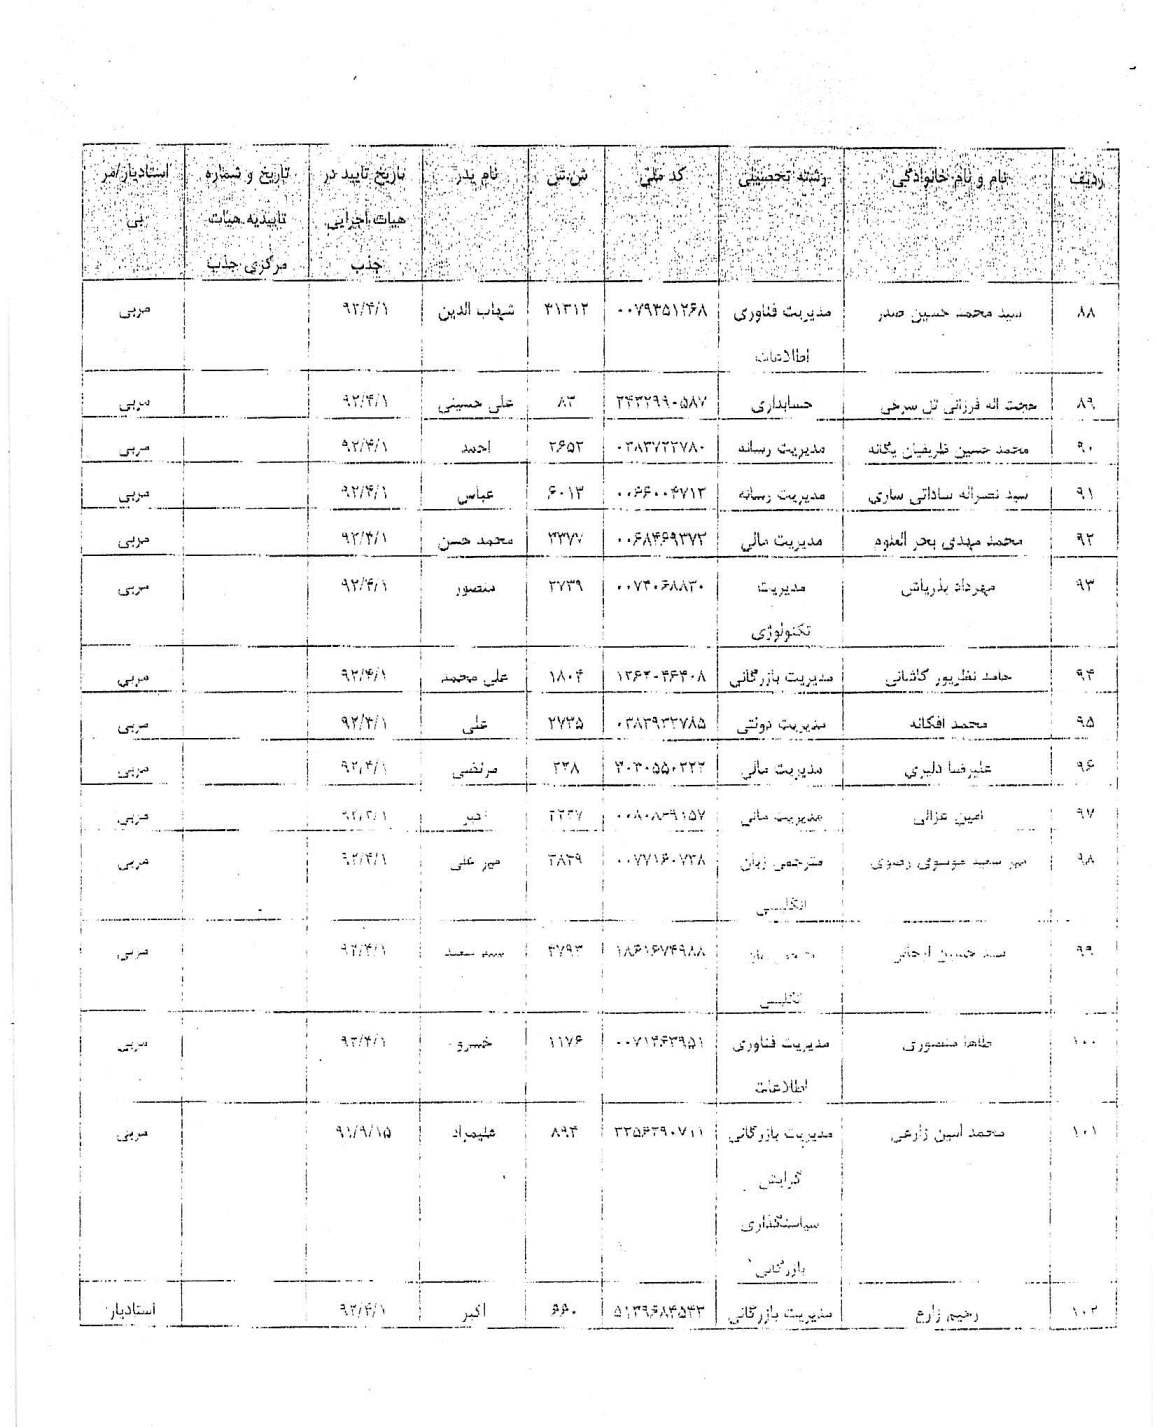 ردیف نام و نام خانوادگی رشته تحصیلی کد ملی ش.ش نام پدر تاریخ تایید در استادیار/مر
تاریخ و شماره
هیات اجرایی تاییدیه هیات بی
جذب مرکزی جذب
۸۸ سید محمد حسین صدر مدیریت فناوری ۰۰۷۹۳۵۱۲۶۸ ۴۱۳۱۲ شهاب الدین ۹۲/۴/۱ مربی
اطلاعات
۸۹ حجت اله فرزانی تل سرخی حسابداری ۲۴۳۲۹۹۰۵۸۷ ۸۳ علی حسینی ۹۲/۴/۱ مربی
۹۰ محمد حسین ظریفیان یگانه مدیریت رسانه ۰۳۸۳۷۲۲۷۸۰ ۲۶۵۲ احمد ۹۲/۴/۱ مربی
۹۱ سید نصراله ساداتی ساری مدیریت رسانه ۰۰۶۶۰۰۴۷۱۳ ۶۰۱۳ عباس ۹۲/۴/۱ مربی
۹۲ محمد مهدی بحر العلوم مدیریت مالی ۰۰۶۸۴۶۹۳۷۲ ۳۳۷۷ محمد حسن ۹۲/۴/۱ مربی
۹۳ مهرداد بذرپاش مدیریت ۰۰۷۴۰۶۸۸۳۰ ۲۷۳۹ منصور ۹۲/۴/۱ مربی
تکنولوژی
۹۴ حامد نظرپور کاشانی مدیریت بازرگانی ۱۲۶۲۰۴۶۴۰۸ ۱۸۰۴ علی محمد ۹۲/۴/۱ مربی
۹۵ محمد افکانه مدیریت دولتی ۰۳۸۳۹۳۲۷۸۵ ۲۷۳۵ علی ۹۲/۴/۱ مربی
۹۶ علیرضا دلیری مدیریت مالی ۲۳۸ مرتضی ۹۲/۴/۱ مربی
۹۷ امین مدیریت مالی مربی
۹۸ میر سعید موسوی رضوی مترجمی زبان ۰۰۷۷۱۶۰۷۳۸ ۳۸۳۹ میر علی ۹۲/۴/۱ مربی
انگلیسی
۹۹ سید حسین ۱۸۶۱۶۷۴۹۸۸ ۳۷۹۳ سید سعید ۹۲/۴/۱ مربی
انگلیسی
۱۰۰ طاها منصوری مدیریت فناوری ۰۰۷۱۴۶۳۹۵۱ ۱۱۷۶ خسرو ۹۲/۴/۱ مربی
اطلاعات
۱۰۱ محمد امین زارعی مدیریت بازرگانی ۸۹۴ علیمراد ۹۱/۹/۱۵ مربی
گرایش
سیاستگذاری
بازرگانی
۱۰۲ رحیم زارع مدیریت بازرگانی ۵۱۳۹۶۸۴۵۴۳ ۶۶۰ اکبر ۹۲/۴/۱ استادیار